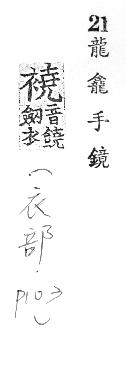 21龍龕手鏡
襓音饒劒衣
(衣部.
P103)